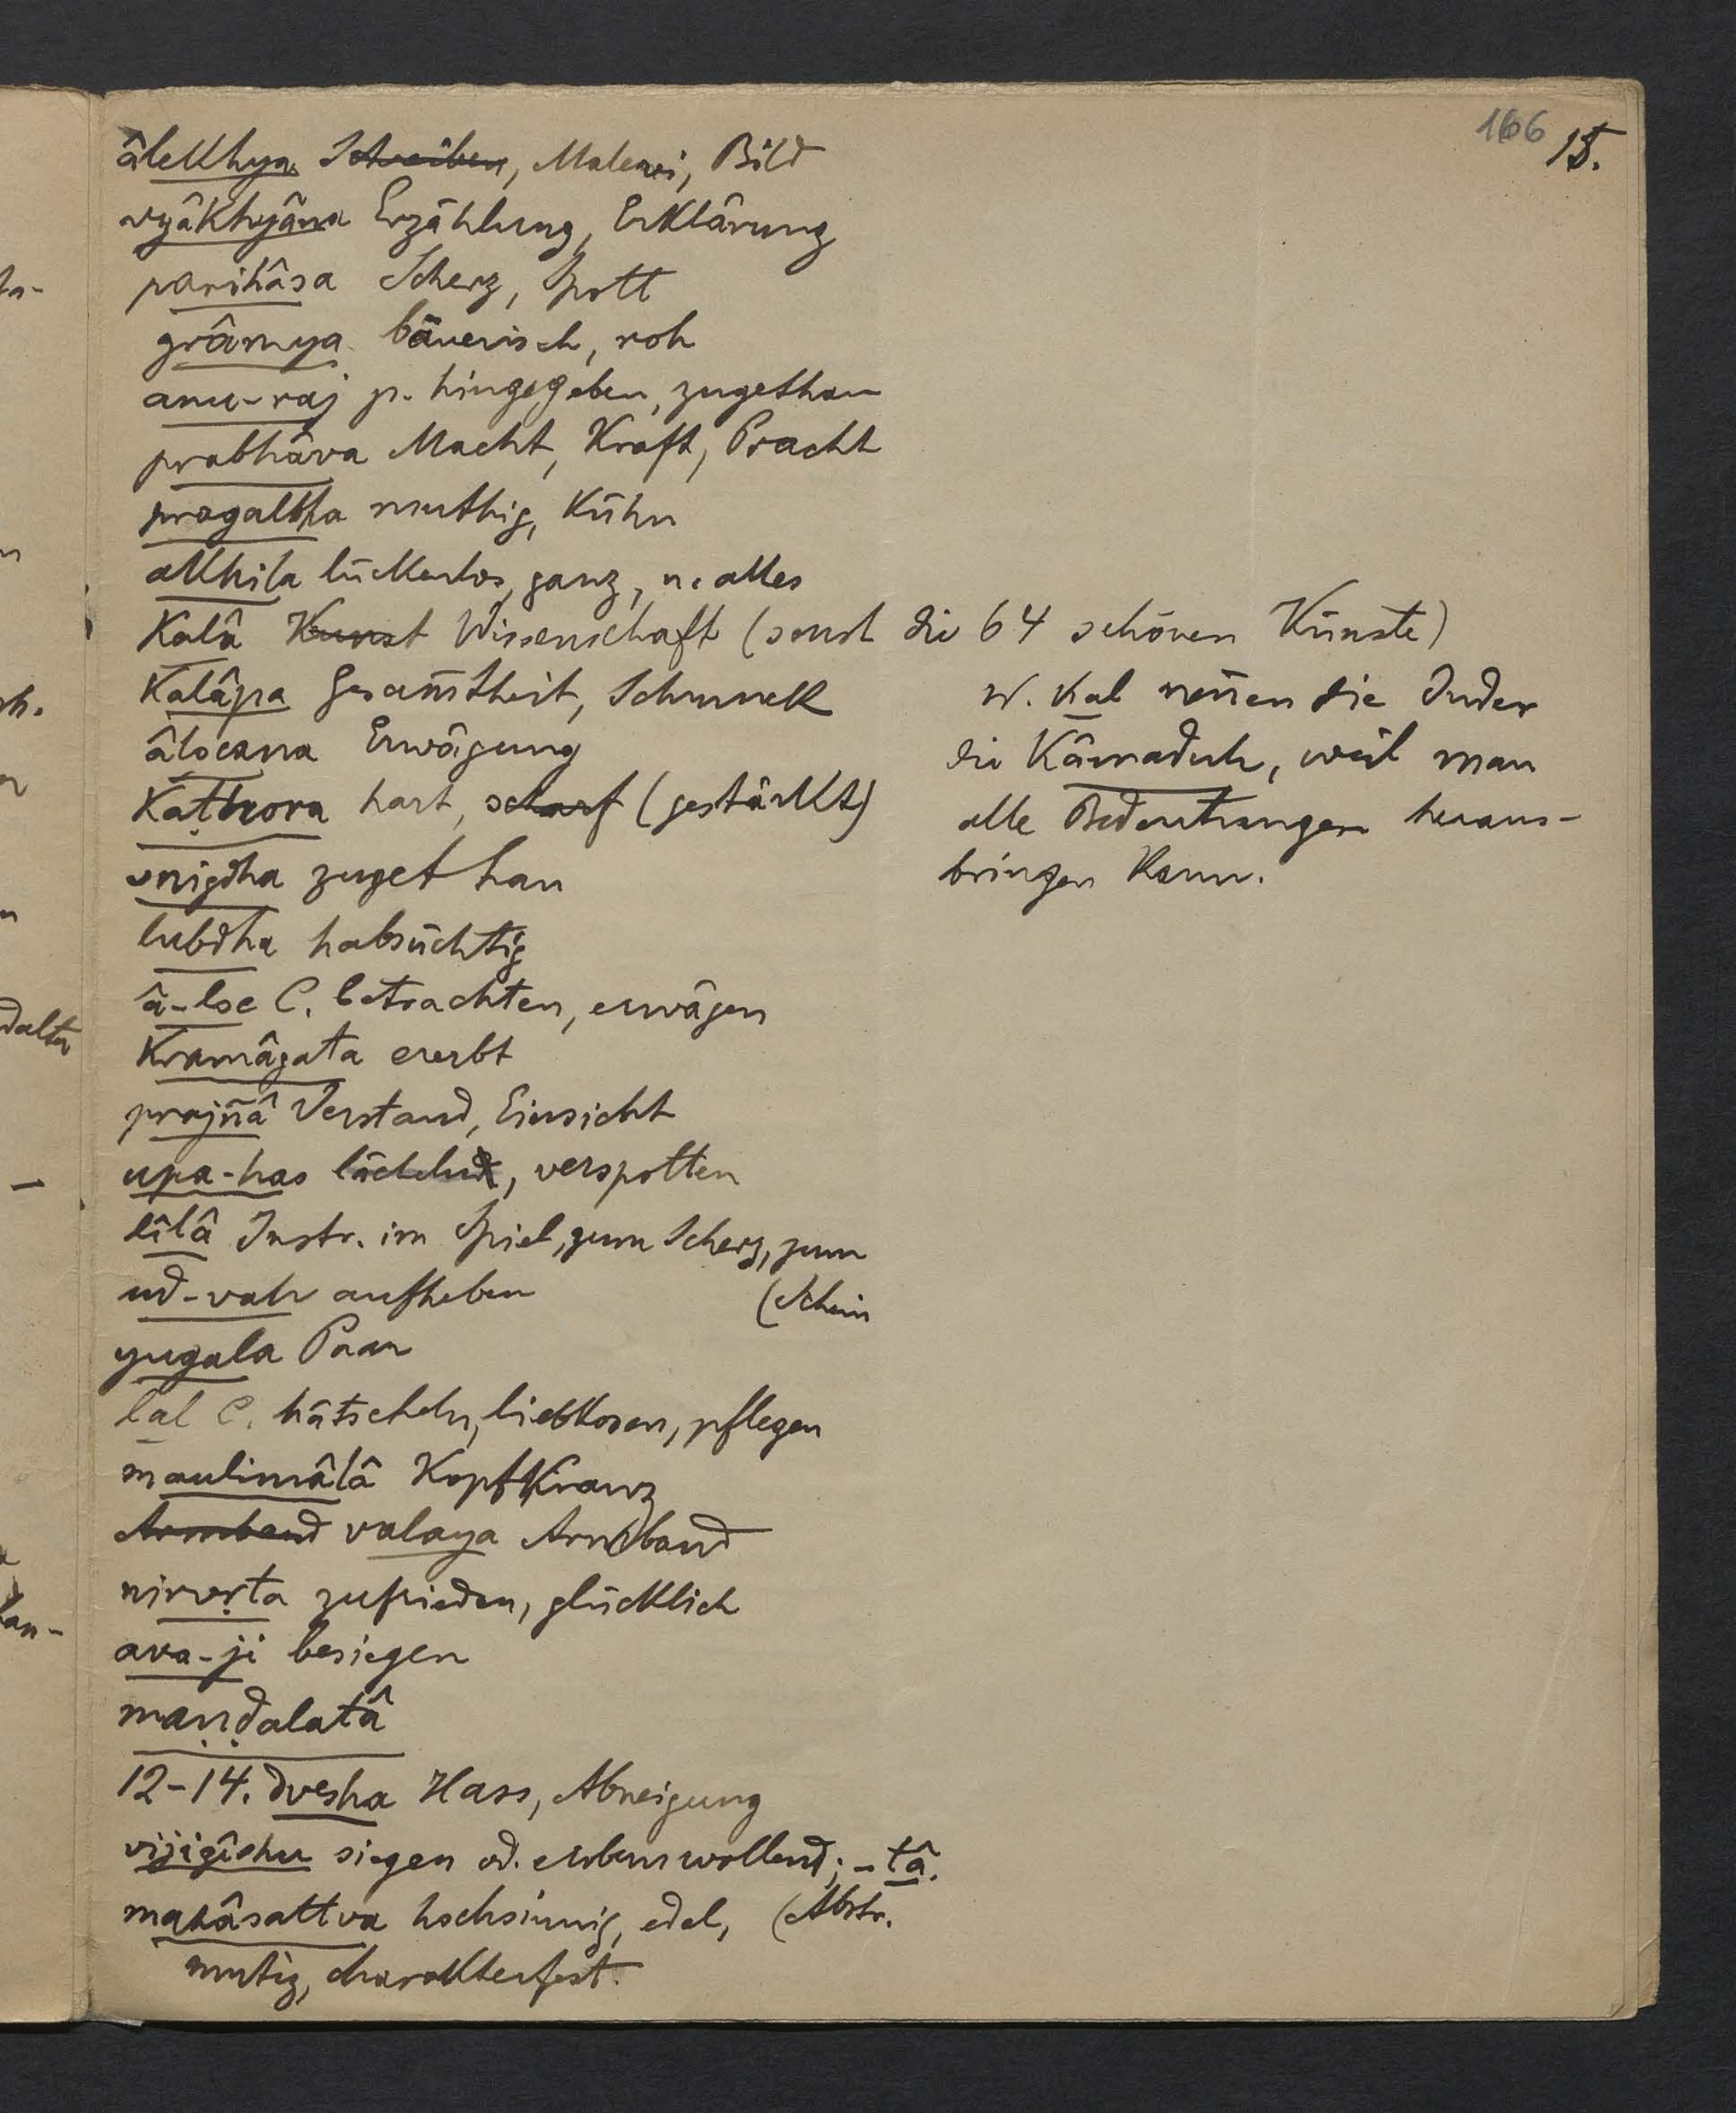 166 15.
âlekhya Schreiben, Malerei, Bild
vyâkhyâna Erzählung, Erklärung
parihâsa Scherz, Spott
grâmya bäuerisch, roh
anu-raj p. hingegeben, zugethan
prabhâva Macht, Kraft, Pracht
pragalbha muthig, kühn
akhila lückenlos, ganz, n. alles
kalâ Kunst Wissenschaft (sonst die 64 schönen Künste)
kalâpa Gesam̄theit, Schmuck
W. kal nen̄en die Inder
die Kâmaduh, weil man
alle Bedeutungen heraus-
bringen kann.
âlocana Erwägung
kaṭhora hart, scharf (gestärkt)
snigdha zugethan
lubdha habsüchtig
â-loc C. betrachten, erwägen
kramâgata ererbt
prajñâ Verstand, Einsicht
upa-has lächeln, verspotten
lîlâ Instr. im Spiel, zum Scherz, zum
(Schein
ud-vah aufheben
yugala Paar
lal C. hätscheln, liebkosen, pflegen
maulimâlâ Kopfkranz
Armband valaya Armband
nirvṛta zufrieden, glücklich
ava-ji besiegen
maṇḍalatâ
12-14. dvesha Hass, Abneigung
vijigîshu siegen od. erobern wollend; -tâ.
(Abstr.
mahâsattva hochsinnig, edel,
mutig, charakterfest.